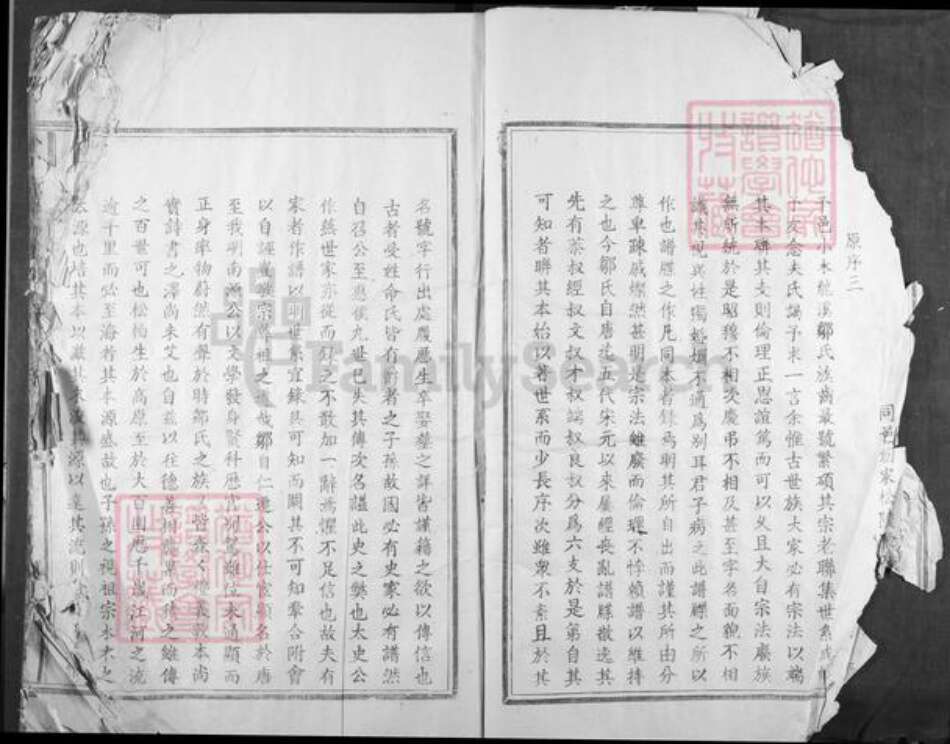 原序三
同邑
予邑小木熊溪鄒氏族齒最號繁碩其宗老聯集世系
予友念夫氏謁予求一言余惟古世族大家必有宗法以聯
其本碩其支則倫理正恩誼篤而可以久且大自宗法廢族
無所統於是昭穆不相次慶弔不相及甚至字名面貌不相
識其視異姓獨婚媾不通爲別耳君子病之此譜牒之所以
作也譜牒之作凡同本者錄焉明其所自出而謹其所由分
尊卑踈戚燦然甚明是宗法雖廢而倫理不悖賴譜以維持
之也今鄒氏自唐迄五代宋元以來屢經喪亂譜牒散逸其
先有蔡叔經叔文叔才叔端叔良叔分爲六支於是第自其
可知者聯其本始以著世系而少長序次雖衆不紊且於其
名號字行出處履歷生卒娶塟之詳皆謹籍之欲以傳信也
古者受姓命氏皆有爵者之子孫故國必有史家必有譜然
自召公至惠侯九世已失其傳次名謚此史之獘也太史公
作燕世家亦從而用之不敢加一辭焉懼不足信也故夫有
家者作譜以明世系宜錄其可知而闕其不可知牽合附會
以自誣
宗
祖之
鄒自仁
公以仕宦顯名於唐
至我明南
公以文學發身賢科歷官
駕
位未通顯而
正身率物蔚然有聲於時鄒氏之族又皆森々禮義敦本尚
實詩書之澤尚未艾也自茲以往德善相
而積之雖傳
之百世可也松栢生於高原至於大百圍
千
江河之流
逾千里而必至海者其本源盛故也子孫之視祖宗本木之
源也培其本以
其末
其源以
其流則